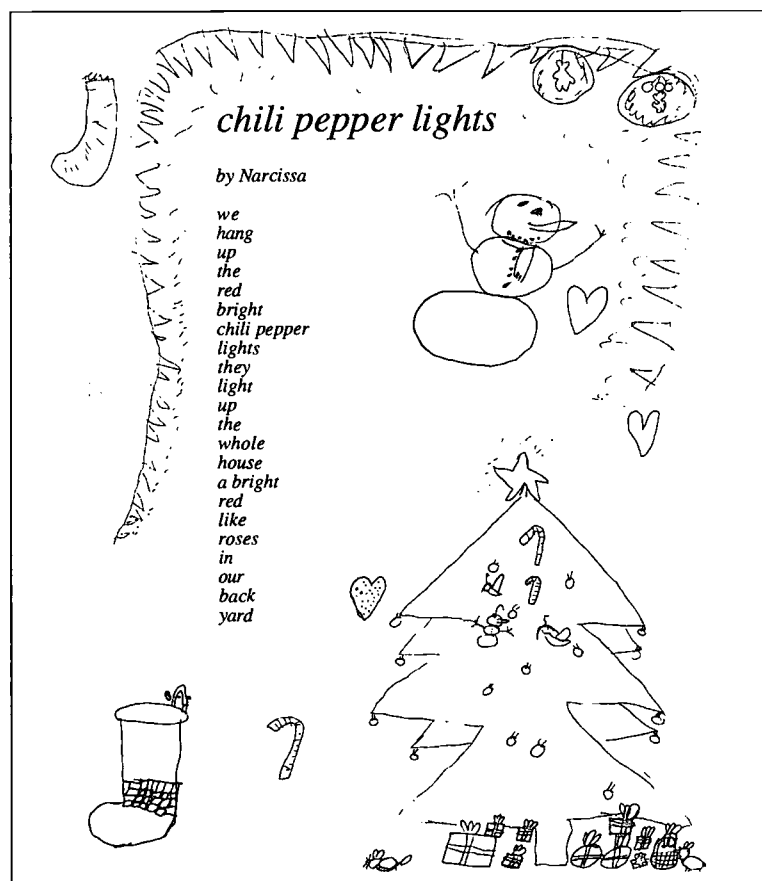 chili pepper lights
by Narcissa
we
hang
up
the
red
bright
chili pepper
lights
they
light
up
the
whole
house
a bright
red
like
roses
in
our
back
yard